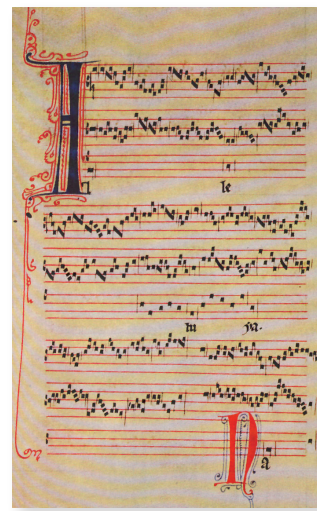 Al le
lu ia.
Na